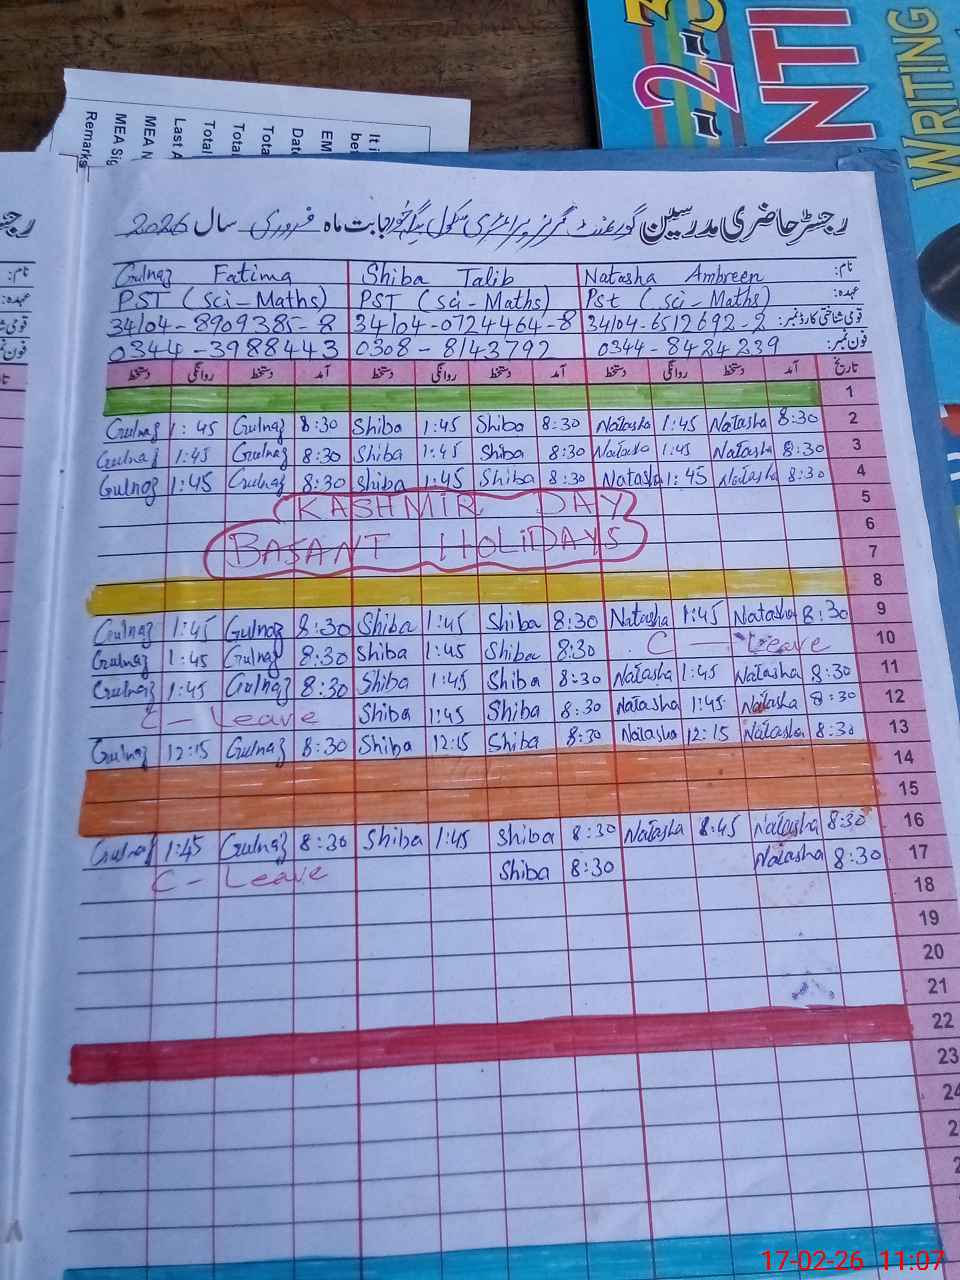 -2-3
NTI
WRITING
It i
be
EM
Dat
Tota
Tota
Total
Last A
MEA N
MEA Sig
Remarks
رجسٹر حاضری مدرسین گورنمنٹ گرلز پرائمری سکول بابت ماہ فروری سال 2026
نام: Natasha Ambreen Shiba Talib Gulnaz Fatima
عہدہ: Pst (Sci-Maths) PST (Sci-Maths) PST (Sci-Maths)
قومی شناختی کارڈ نمبر: 34104-6512692-2 34104-0724464-8 34104-8909385-8
فون نمبر: 0344-8424239 0308-8143792 0344-3988443
تاریخ آمد دستخط روانگی دستخط آمد دستخط روانگی دستخط آمد دستخط روانگی دستخط
1
Gulnaz 1:45 Gulnaz 8:30 Shiba 1:45 Shiba 8:30 Natasha 1:45 Natasha 8:30 2
Gulnaz 1:45 Gulnaz 8:30 Shiba 1:45 Shiba 8:30 Natasha 1:45 Natasha 8:30 3
Gulnaz 1:45 Gulnaz 8:30 Shiba 1:45 Shiba 8:30 Natasha 1:45 Natasha 8:30 4
KASHMIR DAY 5
6
BASANT HOLIDAYS 7
8
Gulnaz 1:45 Gulnaz 8:30 Shiba 1:45 Shiba 8:30 Natasha 1:45 Natasha 8:30 9
Gulnaz 1:45 Gulnaz 8:30 Shiba 1:45 Shiba 8:30 C - Leave 10
Gulnaz 1:45 Gulnaz 8:30 Shiba 1:45 Shiba 8:30 Natasha 1:45 Natasha 8:30 11
C - Leave Shiba 1:45 Shiba 8:30 Natasha 1:45 Natasha 8:30 12
Gulnaz 12:15 Gulnaz 8:30 Shiba 12:15 Shiba 8:30 Natasha 12:15 Natasha 8:30 13
14
15
Gulnaz 1:45 Gulnaz 8:30 Shiba 1:45 Shiba 8:30 Natasha 8:45 Natasha 8:30 16
C - Leave Shiba 8:30 Natasha 8:30 17
18
19
20
21
22
23
24
17-02-26 11:07